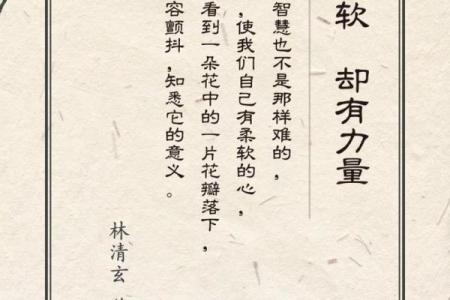 软 却有力量
智慧也不是那样难的，
，使我们自己有柔软的心，
看到一朵花中的一片花瓣落下，
容颤抖，知悉它的意义。
林清玄